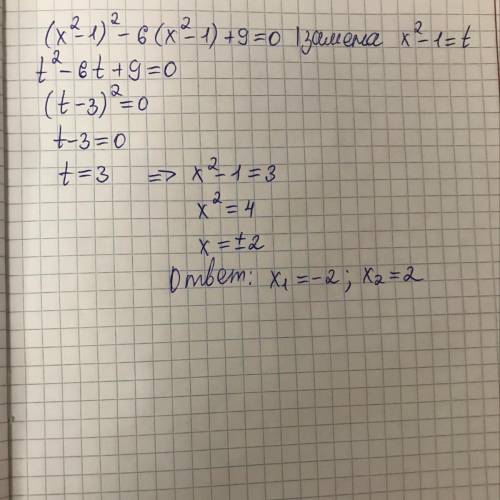 (x²-1)²-6(x²-1)+9=0 |замена x²-1=t
t²-6t+9=0
(t-3)²=0
t-3=0
t=3 => x²-1=3
x²=4
x=±2
Ответ: x₁=-2; x₂=2